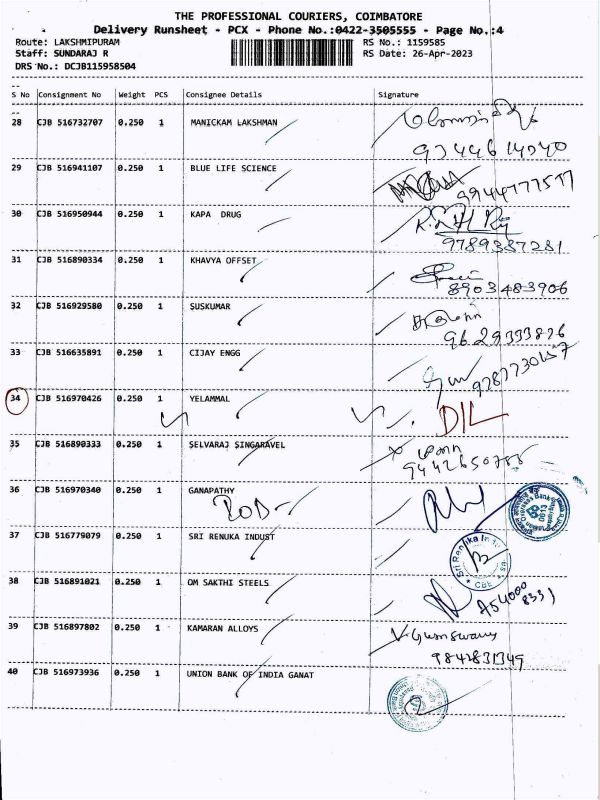 THE PROFESSIONAL COURIERS, COIMBATORE
Delivery Runsheet - PCX - Phone No.:0422-3505555 - Page No.:4
Route: LAKSHMIPURAM RS No.: 1159585
Staff: SUNDARAJ R RS Date: 26-Apr-2023
DRS No.: DCJB115958504
S No Consignment No Weight PCS Consignee Details Signature
28 CJB 516732707 0.250 1 MANICKAM LAKSHMAN
29 CJB 516941107 0.250 1 BLUE LIFE SCIENCE
30 CJB 516950944 0.250 1 KAPA DRUG
9789387281
31 CJB 516890334 0.250 1 KHAVYA OFFSET
8903483906
32 CJB 516929580 0.250 1 SUSKUMAR
9629333876
33 CJB 516635891 0.250 1 CIJAY ENGG
9787730157
34 CJB 516970426 0.250 1 YELAMMAL
DIL
35 CJB 516890333 0.250 1 SELVARAJ SINGARAVEL
36 CJB 516970340 0.250 1 GANAPATHY
POD
37 CJB 516779079 0.250 1 SRI RENUKA INDUST
38 CJB 516891021 0.250 1 OM SAKTHI STEELS
39 CJB 516897802 0.250 1 KAMARAN ALLOYS
40 CJB 516973936 0.250 1 UNION BANK OF INDIA GANAT